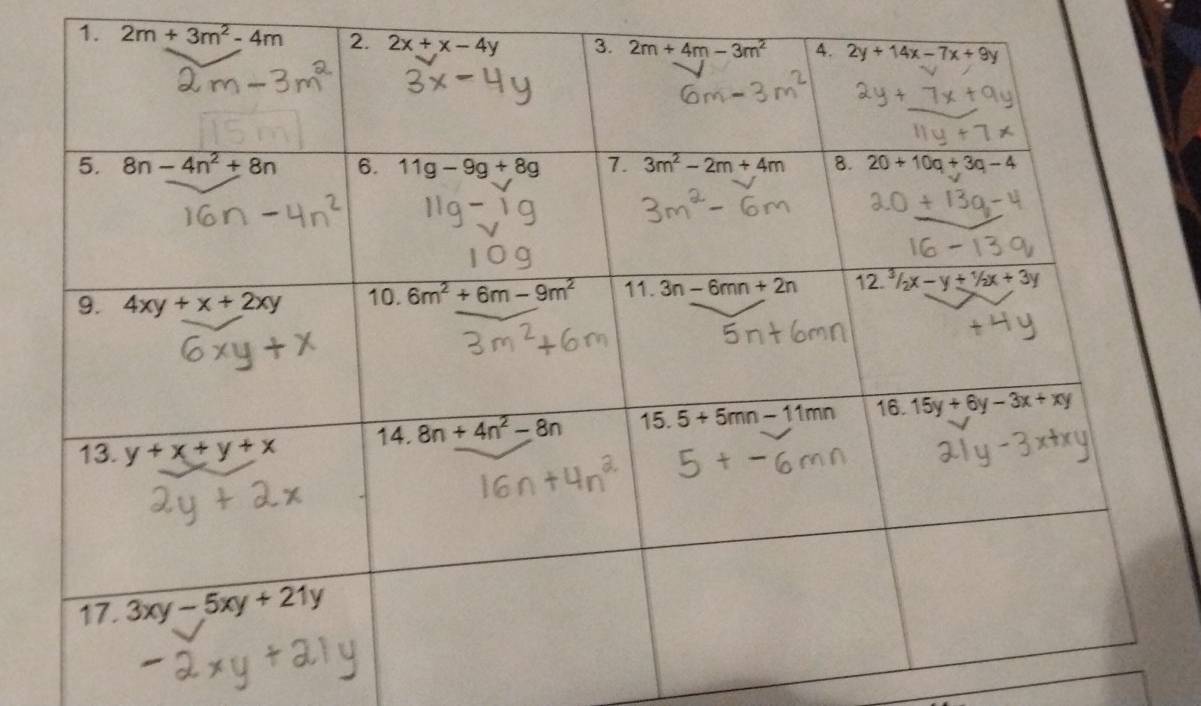 1. 2m + 3m² - 4m
2m - 3m²
15m
2. 2x + x - 4y
3x - 4y
3. 2m + 4m - 3m²
6m - 3m²
4. 2y + 14x - 7x + 9y
2y + 7x + 9y
11y + 7x
5. 8n - 4n² + 8n
16n - 4n²
6. 11g - 9g + 8g
11g - 1g
10g
7. 3m² - 2m + 4m
3m² - 6m
8. 20 + 10q + 3q - 4
20 + 13q - 4
16 - 13q
9. 4xy + x + 2xy
6xy + x
10. 6m² + 6m - 9m²
3m² + 6m
11. 3n - 6mn + 2n
5n + 6mn
12. ³/₂x - y + ½x + 3y
+ 4y
13. y + x + y + x
2y + 2x
14. 8n + 4n² - 8n
16n + 4n²
15. 5 + 5mn - 11mn
5 + - 6mn
16. 15y + 6y - 3x + xy
21y - 3x + xy
17. 3xy - 5xy + 21y
- 2xy + 21y